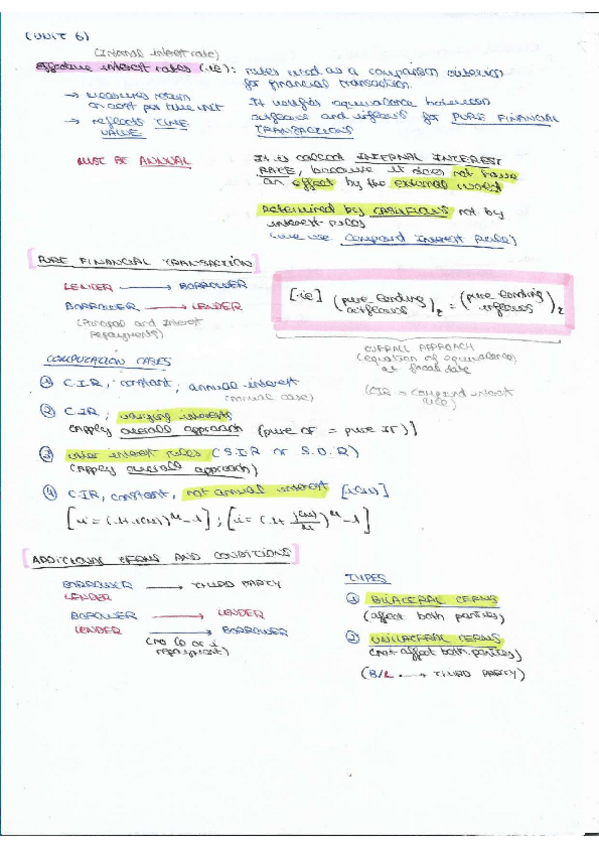 (UNIT 6)
(Internal interest rate)
effective interest rates (ie): rates used as a comparison criterion
for financial transaction.
→ measures return
or cost per time unit
→ reflects TIME
VALUE
It verifies equivalence between
outflows and inflows for PURE FINANCIAL
TRANSACTIONS
MUST BE ANNUAL
It is called INTERNAL INTEREST
RATE, because it does not have
an effect by the external world
Determined by CASHFLOWS not by
interest rules
(we use Compound Interest Rules)
PURE FINANCIAL TRANSACTION
LENDER → BORROWER
BORROWER → LENDER
(Principal and Interest
repayments)
[ie] (pure lending outflows)z = (pure lending inflows)z
OVERALL APPROACH
(equation of equivalence)
at focal date
(CIR = compound interest
rule)
COMPUTATION CASES
① C.I.R, constant, annual interest
(trivial case)
② C.I.R, varying interests
(Apply overall approach (pure OF = pure IF))
③ other interest rules (S.I.R or S.D.R)
(Apply overall approach)
④ C.I.R, constant, not annual interest [i(m)]
[i = (1+i(m))^m - 1] ; [i = (1+ j(m)/m)^m - 1]
ADDITIONAL TERMS AND CONDITIONS
BORROWER → THIRD PARTY
LENDER
BORROWER → LENDER
LENDER → BORROWER
(no P or I
repayment)
TYPES
① BILATERAL TERMS
(affect both parties)
② UNILATERAL TERMS
(not affect both parties)
(B/L → THIRD PARTY)